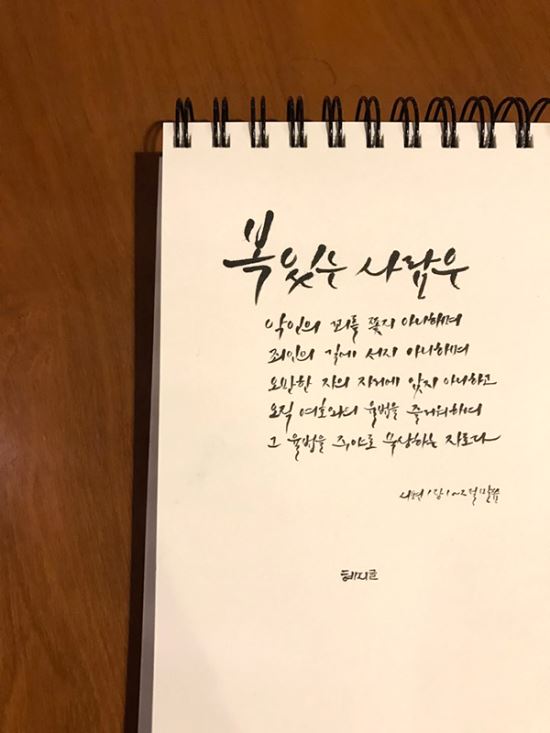 복있는 사람은
악인의 꾀를 쫓지 아니하며
죄인의 길에 서지 아니하며
오만한 자의 자리에 앉지 아니하고
오직 여호와의 율법을 즐거워하며
그 율법을 주야로 묵상하는 자로다
시편 1장 1~2절 말씀
혜지큰